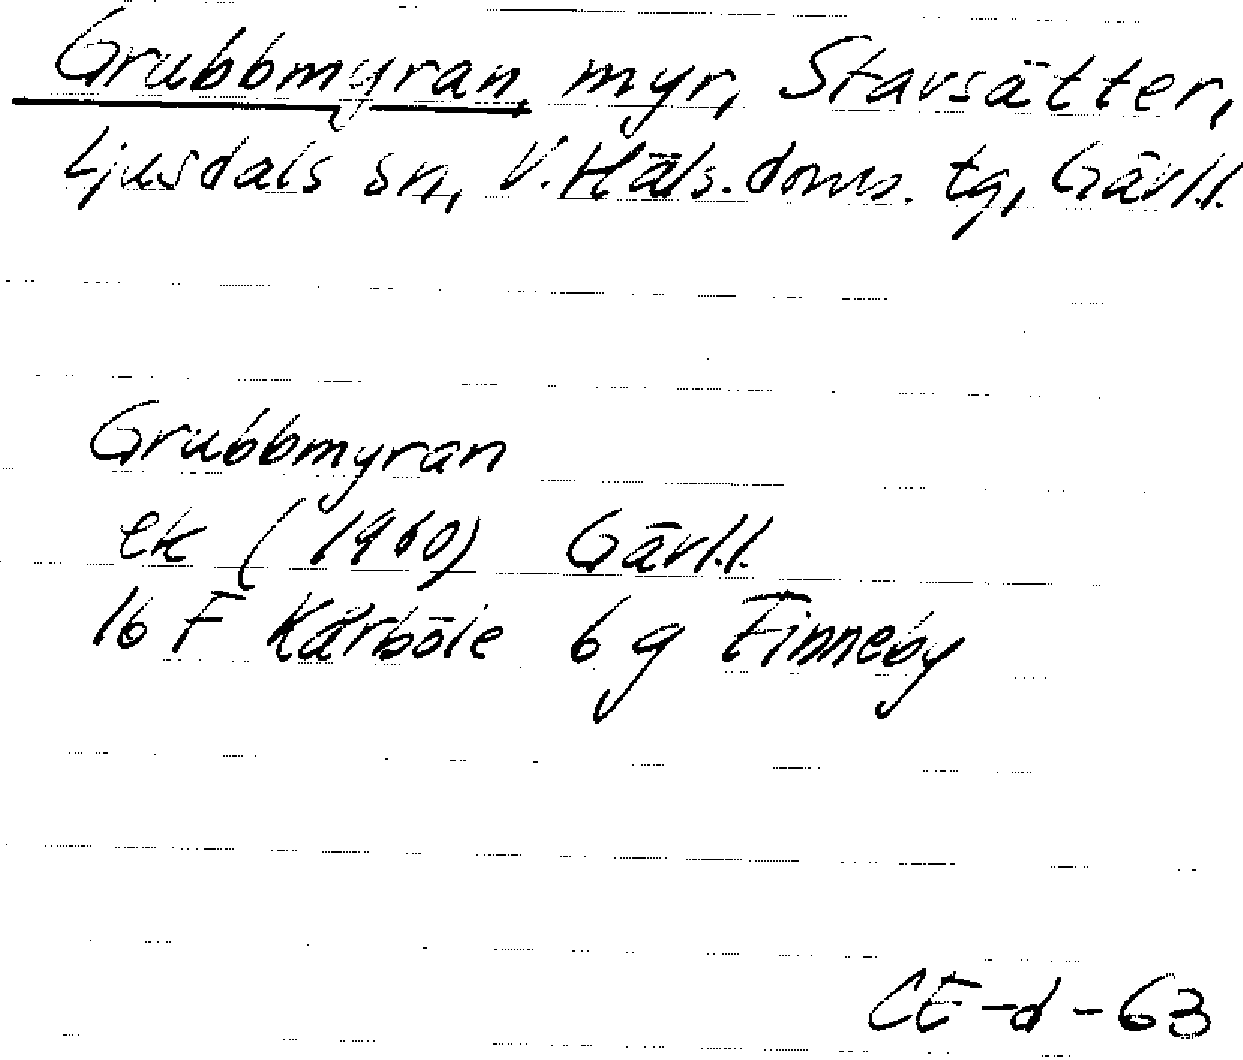 Grubbmyran, myr, Stavsätter,
Ljusdals sn, V. Häls. doms. tg, Gävl.l.
Grubbmyran
ek (1960) Gävl.l.
16 F Kårböle 6 g Finneby
CE-d-63